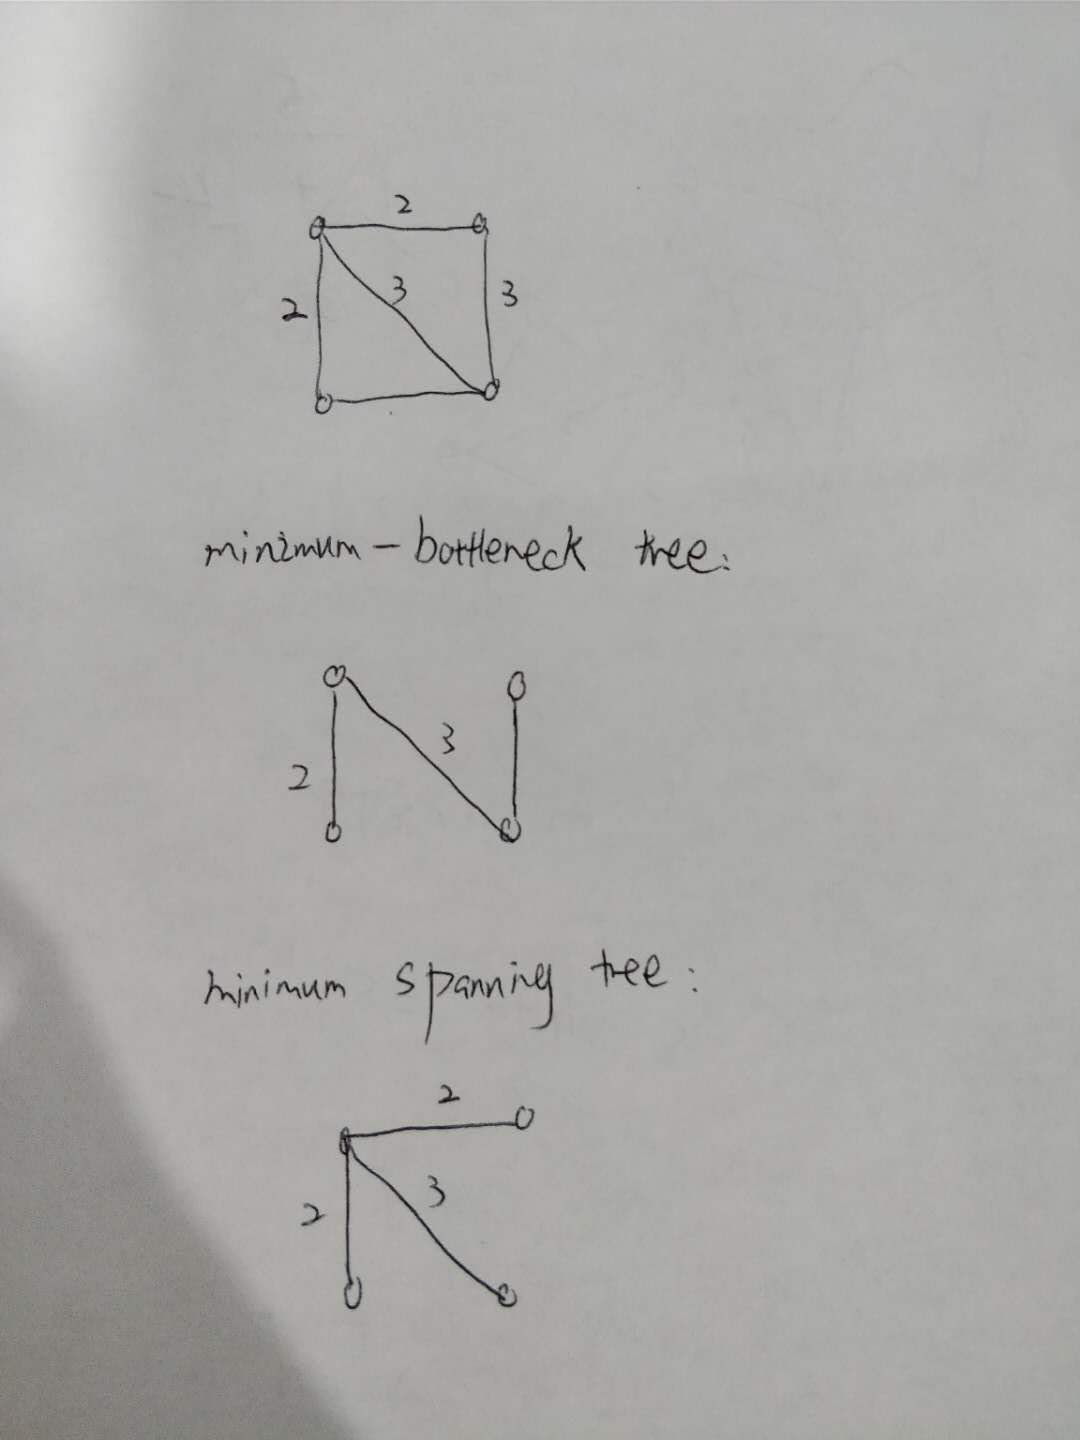 2
3
2
3
minimum - bottleneck tree:
3
2
minimum spanning tree:
2
3
2